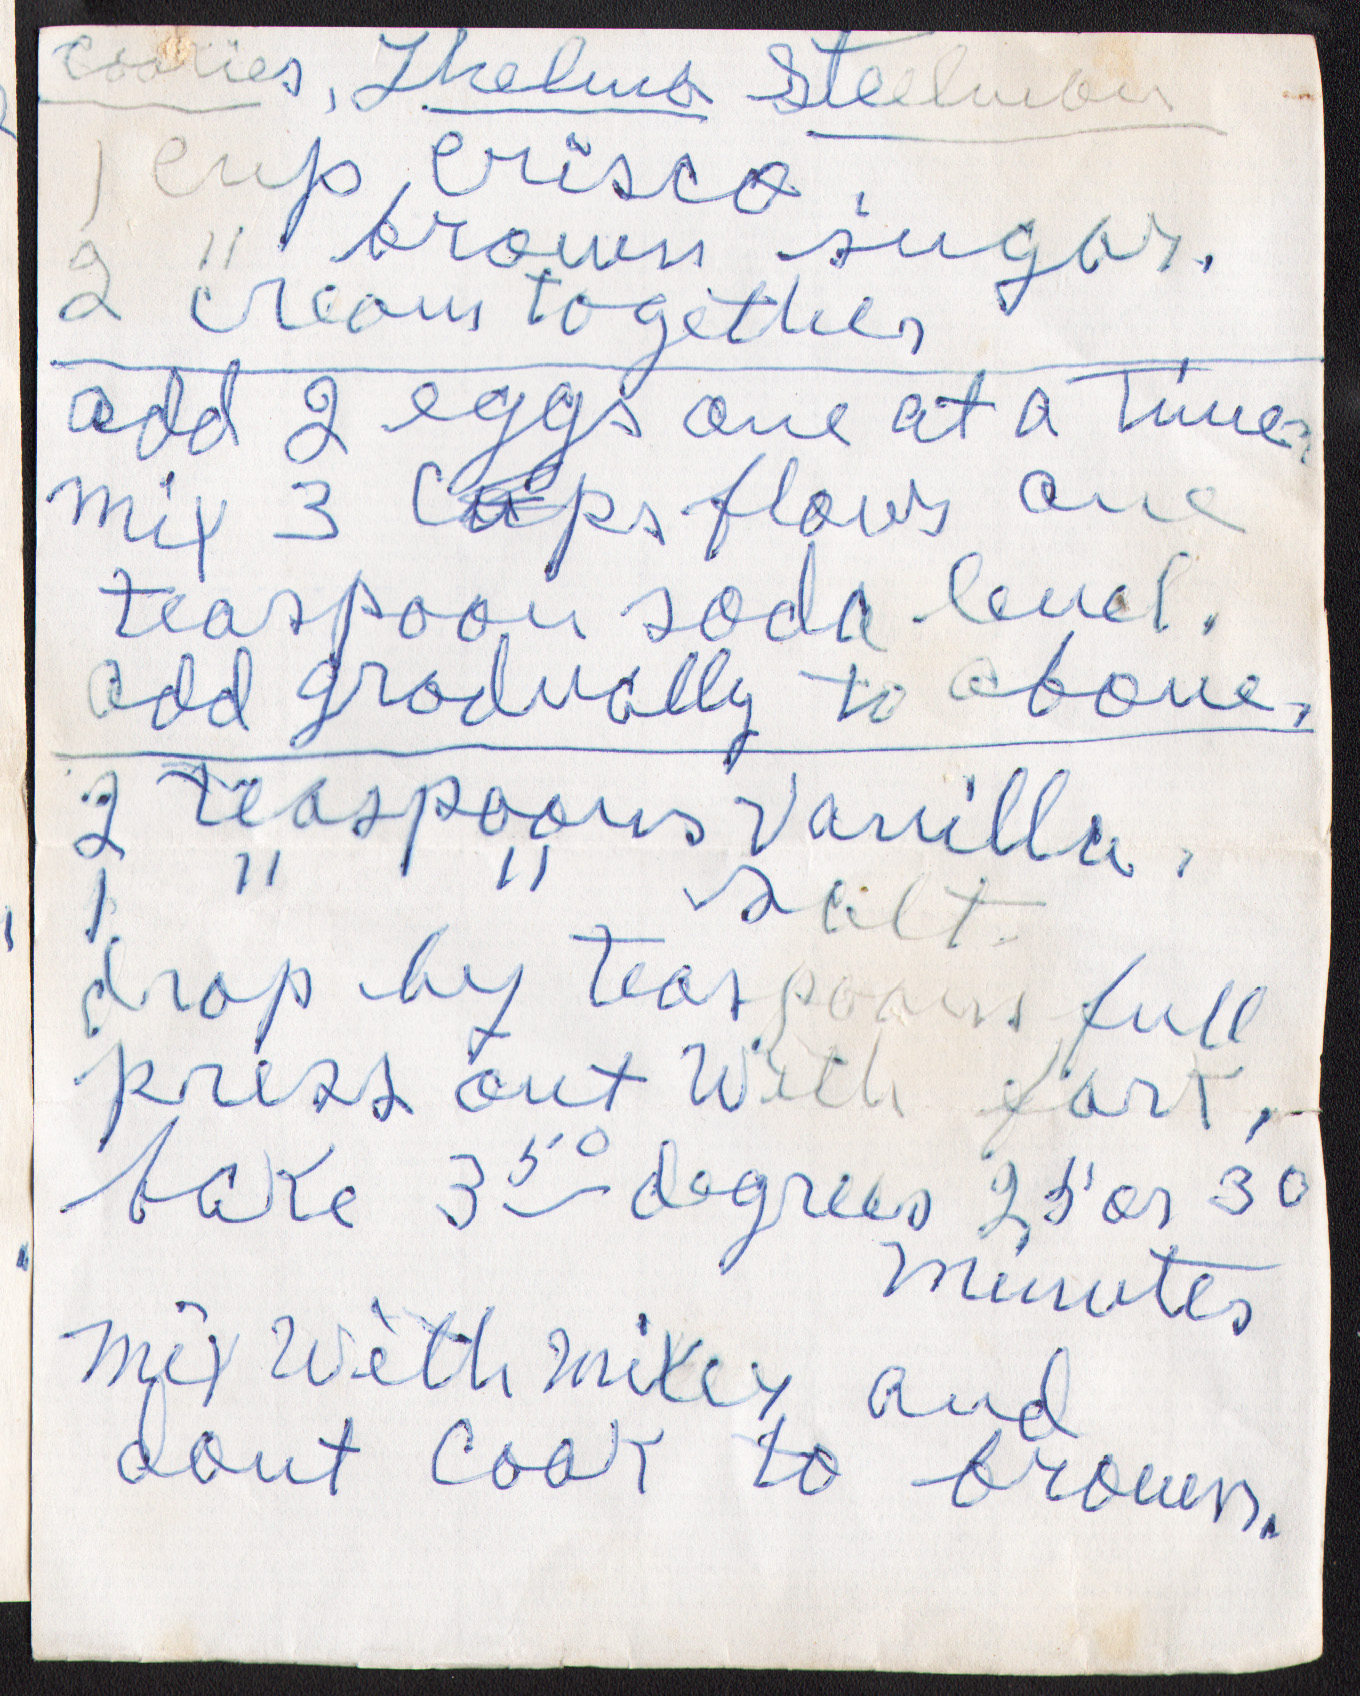 cookies, Thelma Steelman
1 cup crisco.
2 " brown sugar.
cream together
add 2 eggs one at a time,
mix 3 cups flour one
teaspoon soda level.
add gradually to above,
2 teaspoons vanilla.
1 " " salt.
drop by teaspoons full
press out with fork,
bake 350 degrees 25 or 30
minutes
mix with mixer and
dont cook to brown.